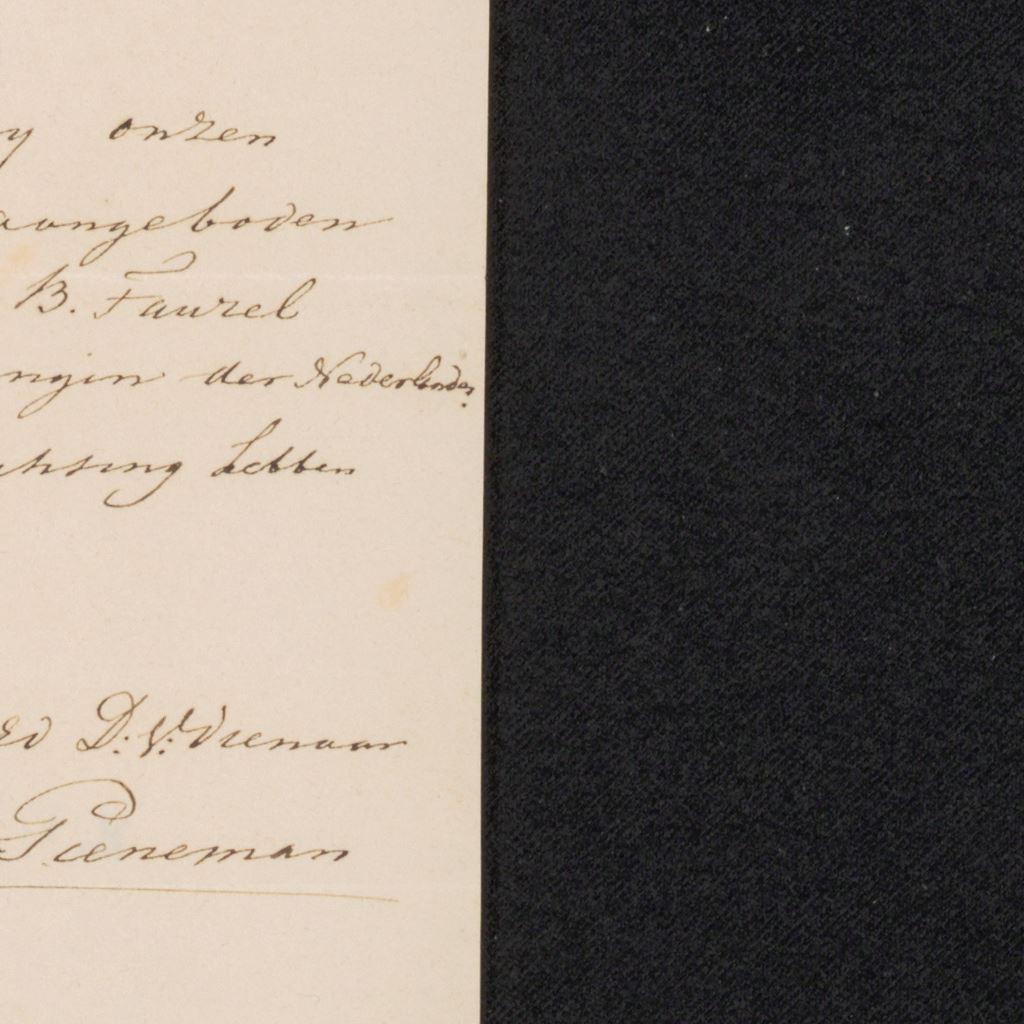 y onzen
aangeboden
B. Fauzel
ngin der Nederlanden
chting hebben
Ed D: V: dienaar
Pieneman